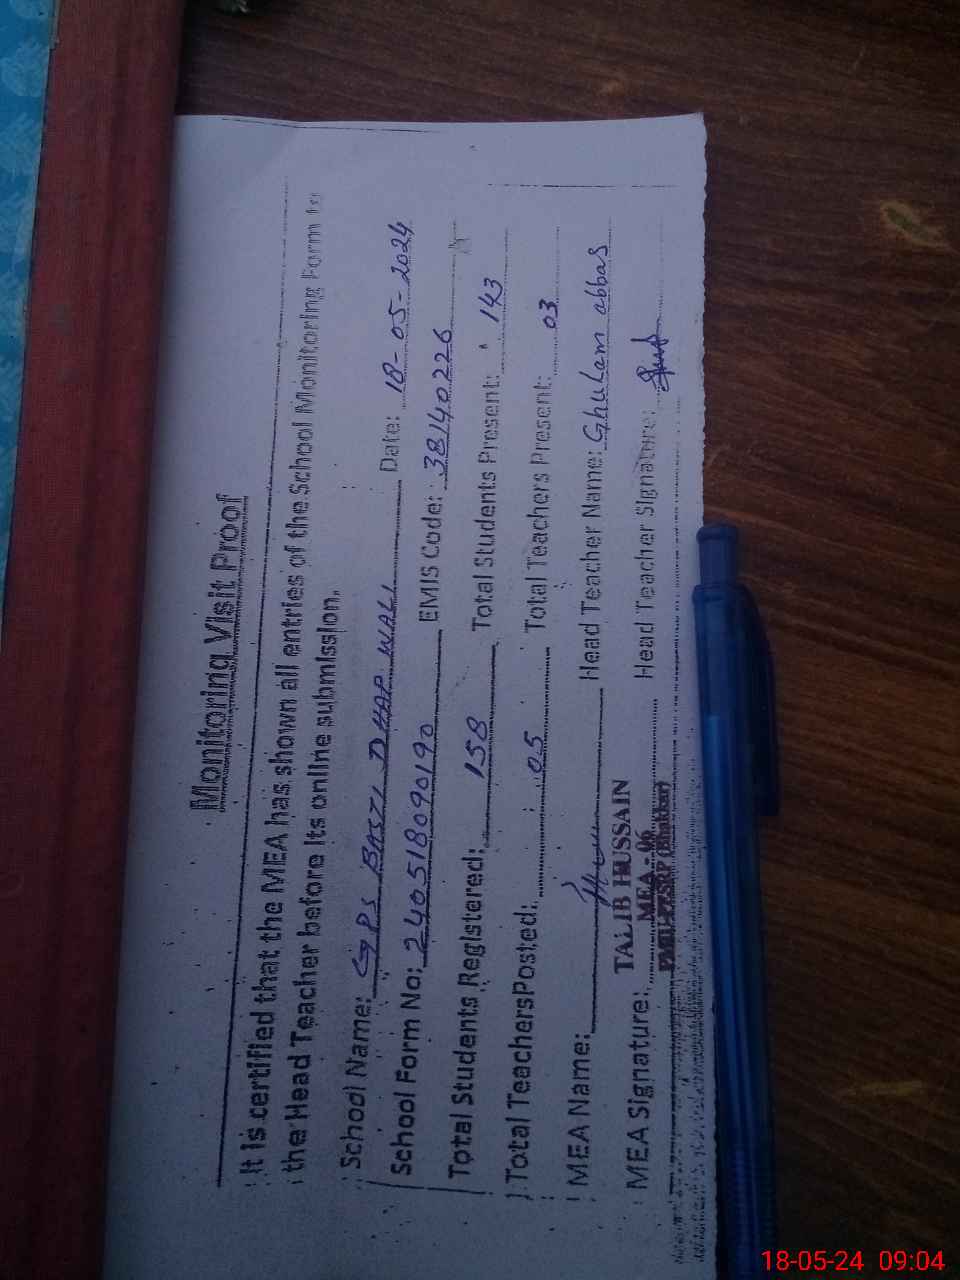 Monitoring Visit Proof
It is certified that the MEA has shown all entries of the School Monitoring Form to
the Head Teacher before its online submission.
School Name: GPS BASTI DHAP WALI Date: 18-05-2024
School Form No: 240518090190 EMIS Code: 38140226
Total Students Registered: 158 Total Students Present: 143
Total TeachersPosted: 05 Total Teachers Present: 03
MEA Name: Head Teacher Name: Ghulam abbas
TALIB HUSSAIN
MEA - 06
MEA Signature: Head Teacher Signature:
(Bhakkar)
18-05-24 09:04